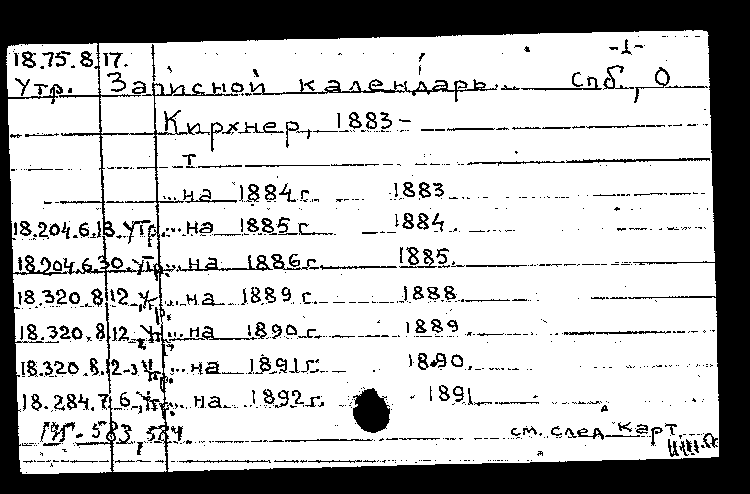 18.75.8.17. -1-
Утр. Записной календарь... Спб., О
Кирхнер, 1883-
т
...на 1884 г. 1883
18.204.6.13 Утр. ...на 1885 г. 1884
18.204.6.30. Утр. ...на 1886 г. 1885.
18.320.8.12 Утр. ...на 1889 г. 1888
18.320.8.12 Утр. ...на 1890 г. 1889
18.320.8.12-3 Утр. ...на 1891 г. 1890.
18.284.7.6 Утр. ...на 1892 г. 1891
583, 584.
см. след карт